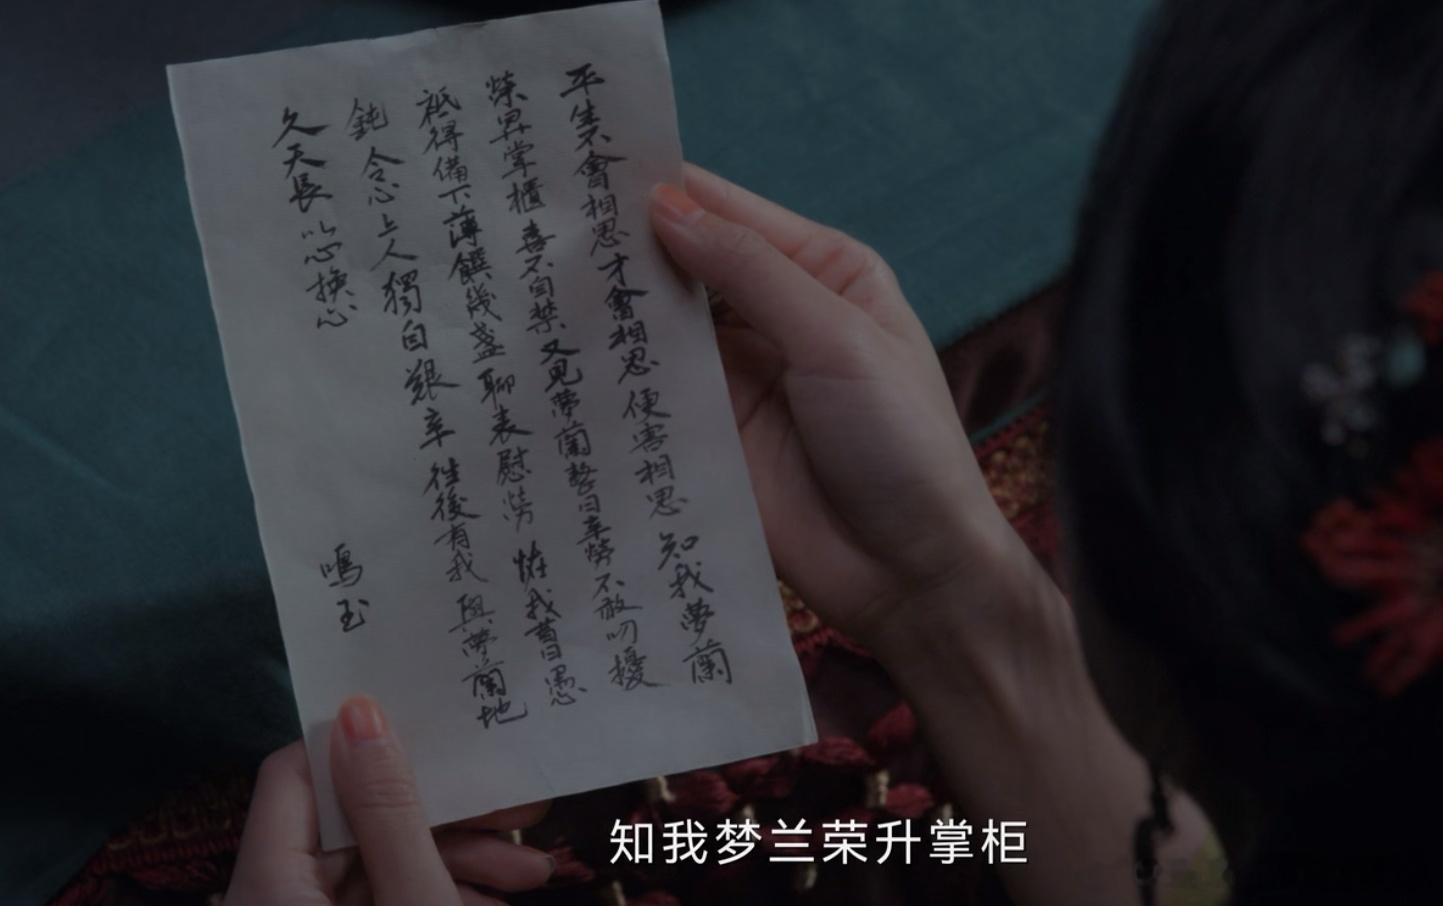 平生不會相思才會相思便害相思知我夢蘭
榮昇掌櫃喜不自禁又見夢蘭整日辛勞不敢叨擾
祗得備下薄饌幾盞聊表慰勞怪我昔日愚
鈍令心上人獨自艱辛往後有我與夢蘭地
久天長以心換心
鳴玉
知我梦兰荣升掌柜